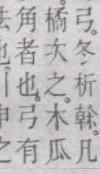 弓。冬析幹。凡
橘次之。木瓜
角者也。弓有